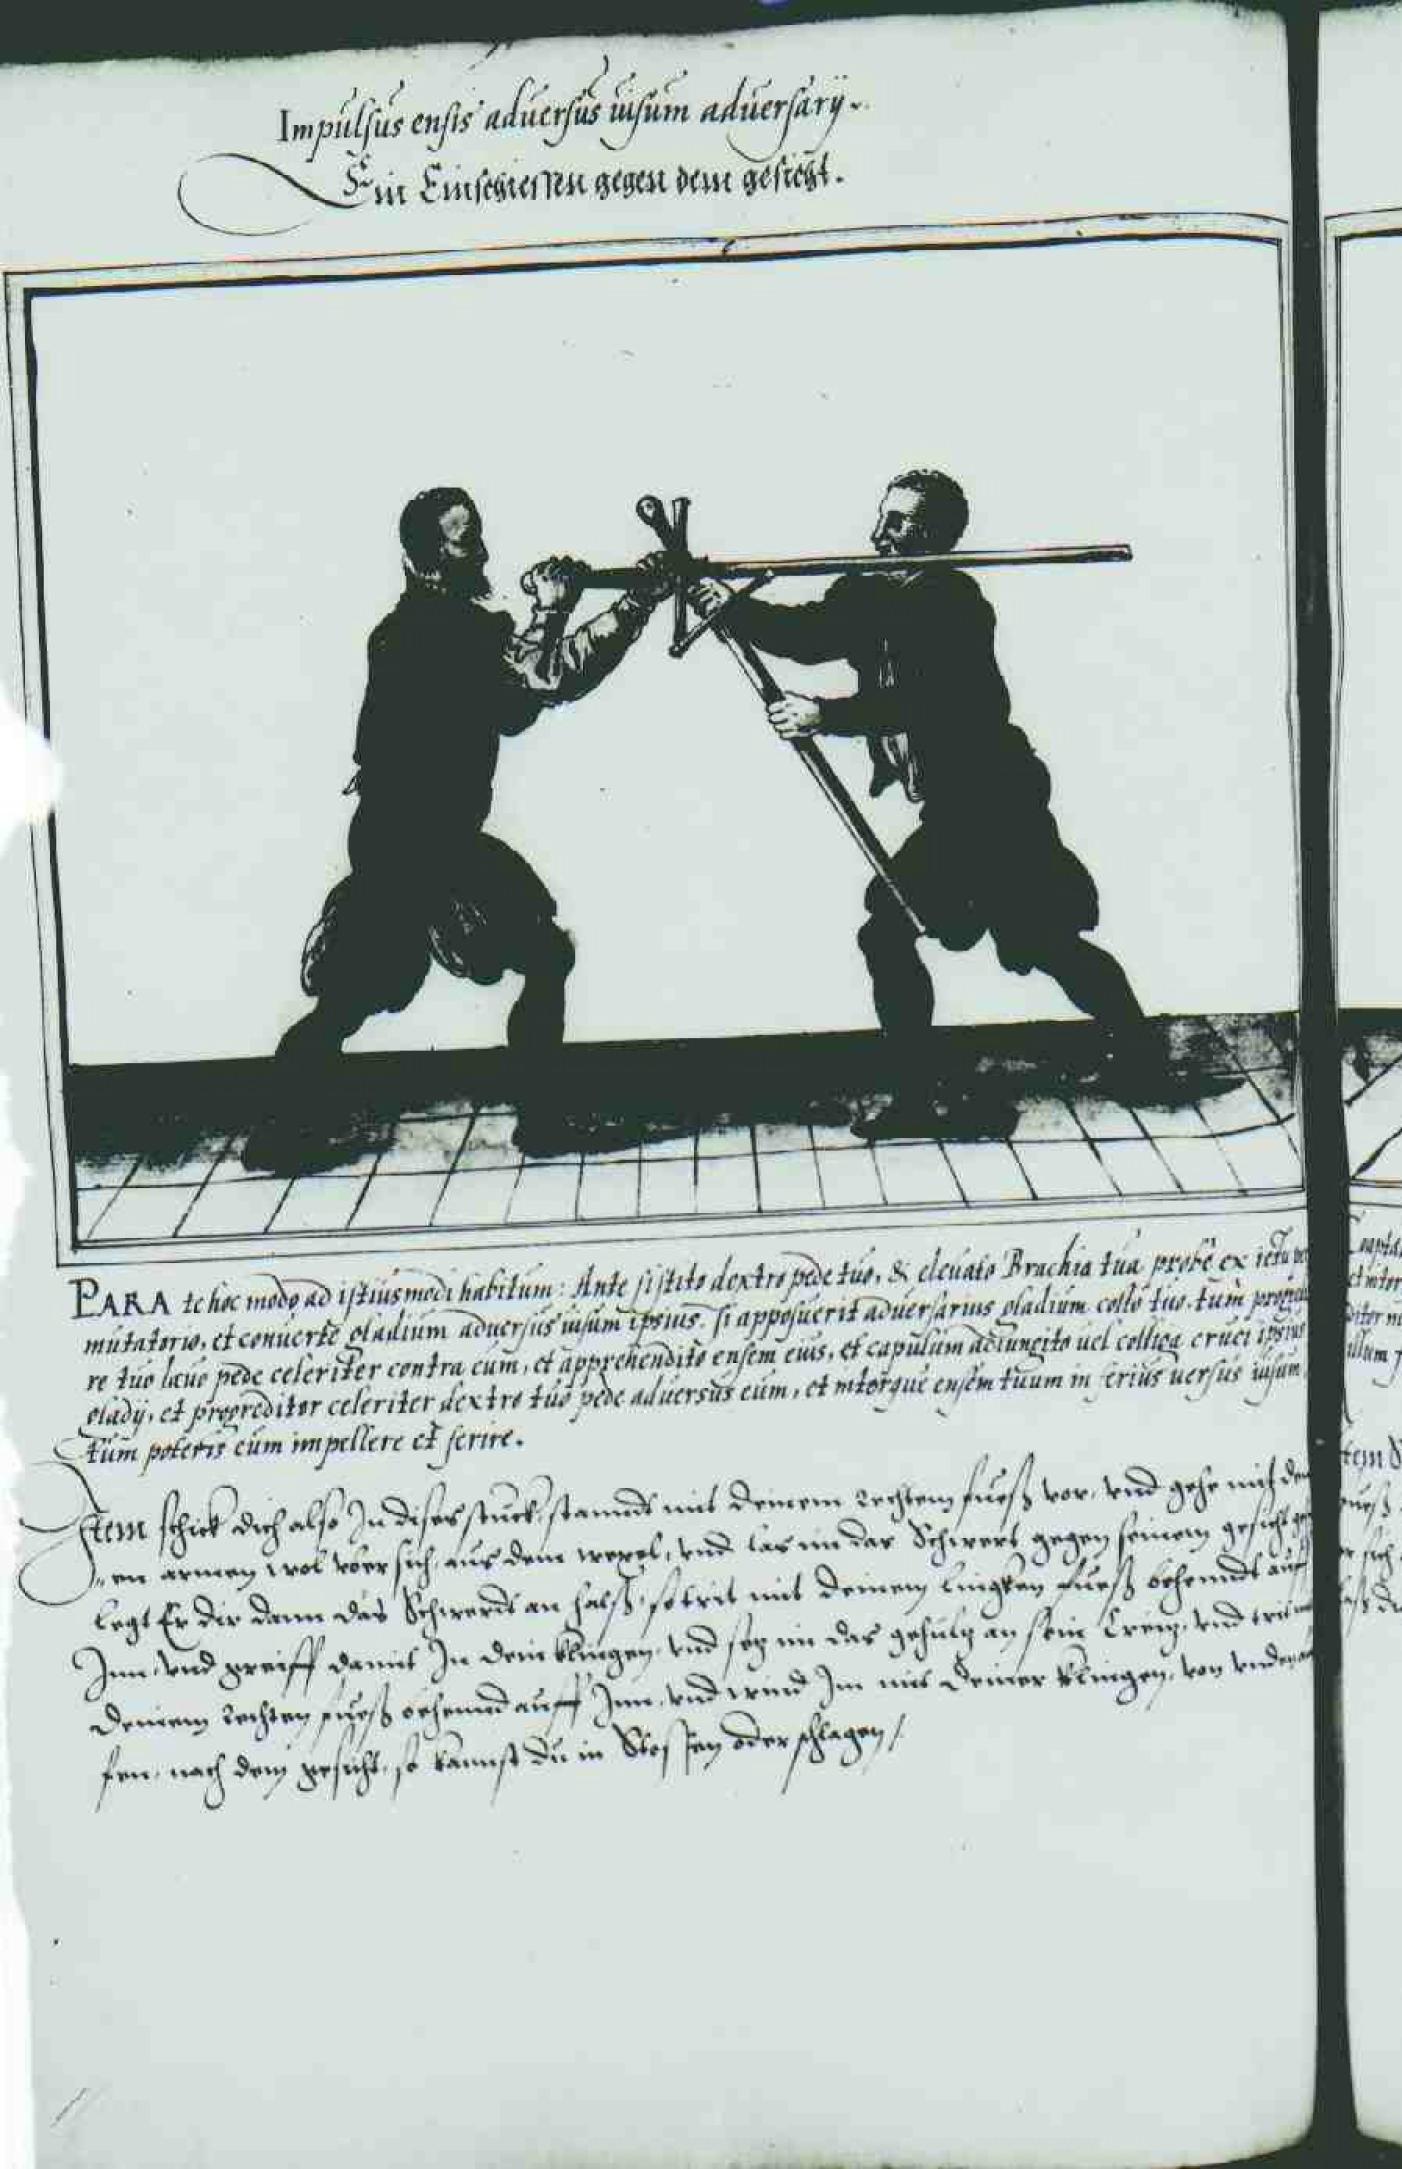 Impulsus ensis adversus uisum adversarÿ.
Ein Einschiessen gegen dem gesicht.
PARA te hoc modo ad istiusmodi habitum: Ante sistito dextro pede tuo, & eleuato Brachia tua probe ex ictu
mutatorio, et conuerte gladium aduersus uisum ipsius. si apposuerit aduersarius gladium collo tuo, tum
re tuo laeuo pede celeriter contra eum, et apprehendito ensem eius, et capulum adiungito uel colliga cruci ipsius
gladij, et progreditor celeriter dextro tuo pede aduersus eum, et intorque ensem tuum inferius uersus uisum
tum poteris eum impellere et ferire.
Item schick dich also In dises stuck, stannd mit deinem rechtem fueß vor, vnd gehe mit
en armen wol vber sich, aus dem wexel, vnd las im das Schwert gegen seinem gesicht
legt Er dir dann das Schwerdt an halß, so trit mit deinem linggken fueß behenndt auff
Inn, vnd greiff damit In dein klingen, vnd setz im das gehultz an sein Creutz, vnd trit
deinem rechten fueß behennd auff Inn, vnd wind Im mit deiner klingen, von vnden
fen, nach dem gesicht, so kannst du in Stossen oder schlagen